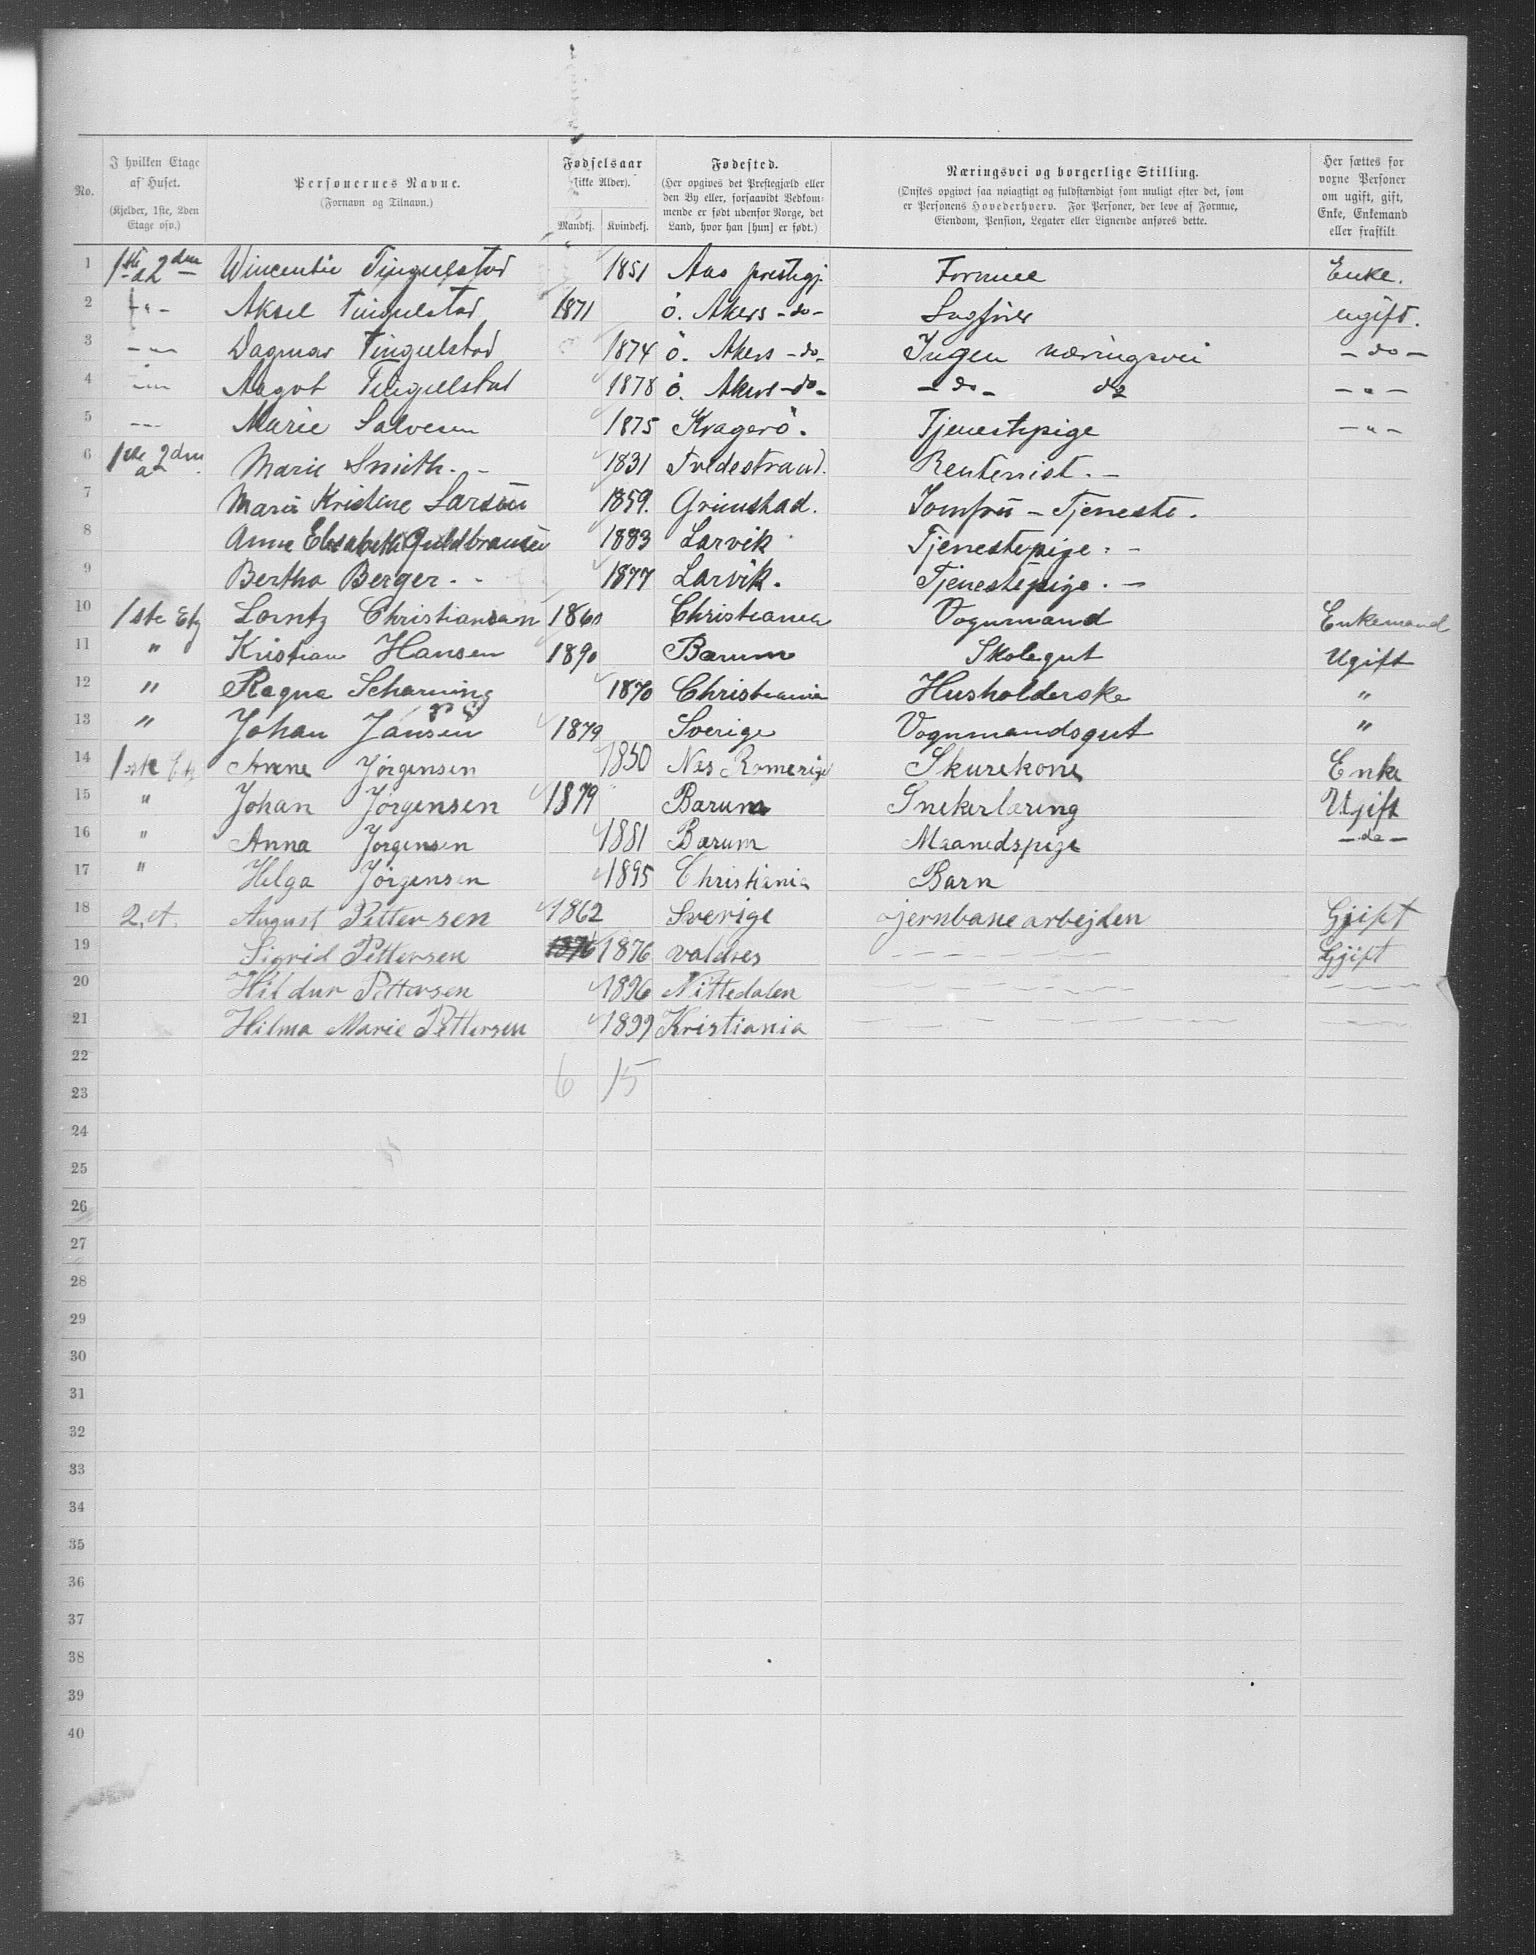 No. | I hvilken Etage af Huset. (Kjelder, 1ste, 2den Etage osv.) | Personernes Navne. (Fornavn og Tilnavn.) | Fødselsaar (ikke Alder). Mandkj. | Kvindekj. | Fødested. (Her opgives det Prestegjæld eller den By eller, forsaavidt Vedkommende er født udenfor Norge, det Land, hvor han [hun] er født.) | Næringsvei og borgerlige Stilling. (Ønskes opgivet saa nøiagtigt og fuldstændigt som muligt efter det, som er Personens Hovederhverv. For Personer, der leve af Formue, Eiendom, Pension, Legater eller Lignende anføres dette. | Her sættes for voxne Personer om ugift, gift, Enke, Enkemand eller fraskilt
1 1ste a 2den Wincentie Tingelstad 1851 Aas prestegj. Formue Enke.
2 - " - Aksel Tingelstad 1871 ö. Akers - do - Sagfører ugift.
3 - " - Dagmar Tingelstad 1874 ö. Akers - do - Ingen næringsvei - do -
4 - " - Aagot Tingelstad 1878 ö. Akers - do - - do - do - " -
5 - " - Marie Salvesen 1875 Kragerö. Tjenestepige - " -
6 1ste a 2den Marie Smith. - 1831 Tvedestrand. Rentenist. -
7 Marie Kristine Larsen 1859. Grimstad. Jomfru - Tjeneste.
8 Anne Elisabeth Guldbransen 1883 Larvik Tjenestepige. -
9 Bertha Berger. - 1877 Larvik. Tjenestepige. -
10 1ste Etg Lorntz Christiansen 1860 Christiania Vognmand Enkemand
11 " Kristian Hansen 1890 Bærum Skolegut Ugift
12 " Ragna Scharning 1870 Christiania Husholderske "
13 " Johan Jansen 1879 Sverige Vognmandsgut "
14 1ste Et Anne Jørgensen 1850 Nes Romerige Skurekone Enke
15 " Johan Jørgensen 1879 Bærum Snekerlæring Ugift
16 " Anna Jørgensen 1881 Bærum Maanedspige - do -
17 " Helga Jørgensen 1895 Christiania Barn
18 2. et. August Pettersen 1862 Sverige jernbanearbejden Gjift
19 Sigrid Pettersen 1876 1876 valdres - - - - - Gjift
20 Hildur Pettersen 1896 Nittedalen - - - - -
21 Hilma Marie Pettersen 1899 Kristiania - - - - -
22
6 15
23
24
25
26
27
28
29
30
31
32
33
34
35
36
37
38
39
40